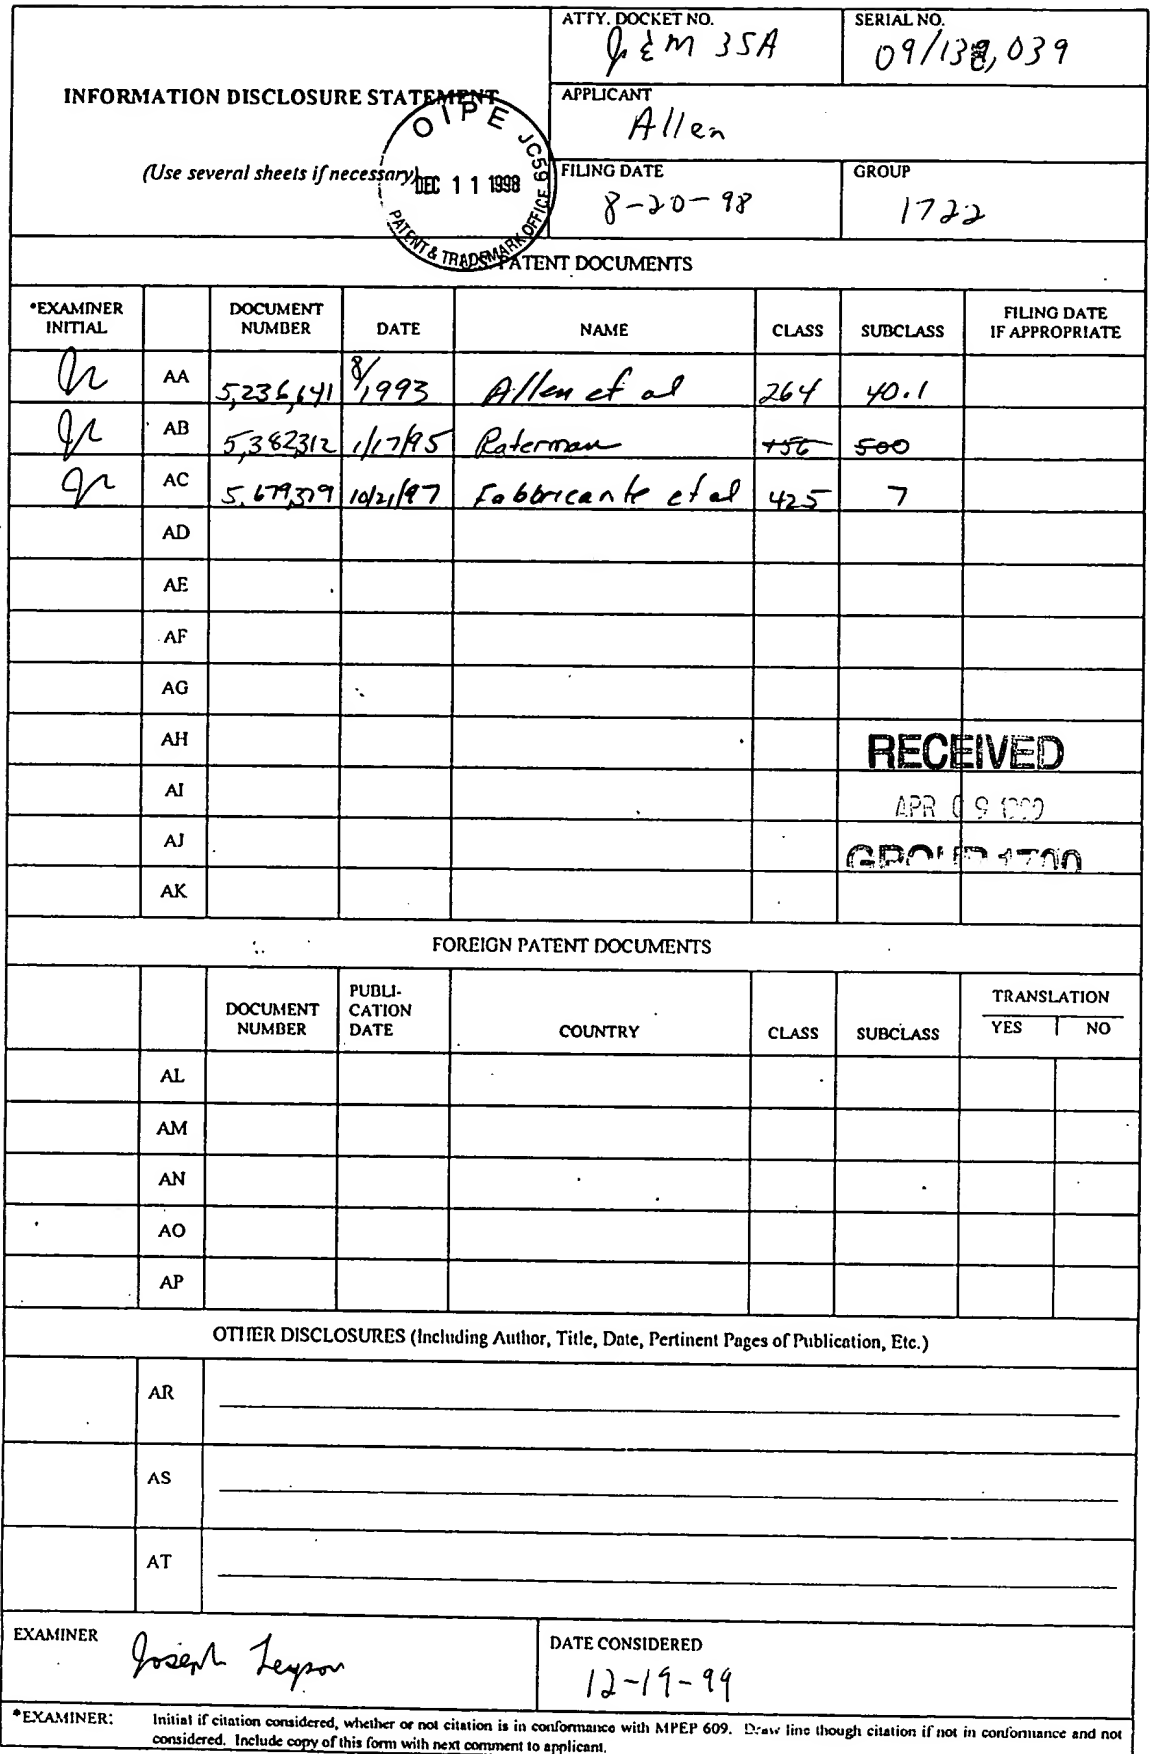 ATTY. DOCKET NO.
J & M 35A
SERIAL NO.
09/138,039
INFORMATION DISCLOSURE STATEMENT
(Use several sheets if necessary)
APPLICANT
Allen
FILING DATE
8-20-98
GROUP
1722
OIPE JC59
DEC 11 1998
PATENT & TRADEMARK OFFICE
PATENT DOCUMENTS
*EXAMINER INITIAL DOCUMENT NUMBER DATE NAME CLASS SUBCLASS FILING DATE IF APPROPRIATE
AA 5,236,641 8/1993 Allen et al 264 40.1
AB 5,382,312 1/17/95 Raterman 156 500
AC 5,679,379 10/21/97 Fabbricante et al 425 7
AD
AE
AF
AG
AH
AI
AJ
AK
RECEIVED
APR 09
GROUP 1700
FOREIGN PATENT DOCUMENTS
DOCUMENT NUMBER PUBLI-CATION DATE COUNTRY CLASS SUBCLASS TRANSLATION YES NO
AL
AM
AN
AO
AP
OTHER DISCLOSURES (Including Author, Title, Date, Pertinent Pages of Publication, Etc.)
AR
AS
AT
EXAMINER
Joseph Leyson
DATE CONSIDERED
12-19-99
*EXAMINER: Initial if citation considered, whether or not citation is in conformance with MPEP 609. Draw line though citation if not in conformance and not
considered. Include copy of this form with next comment to applicant.